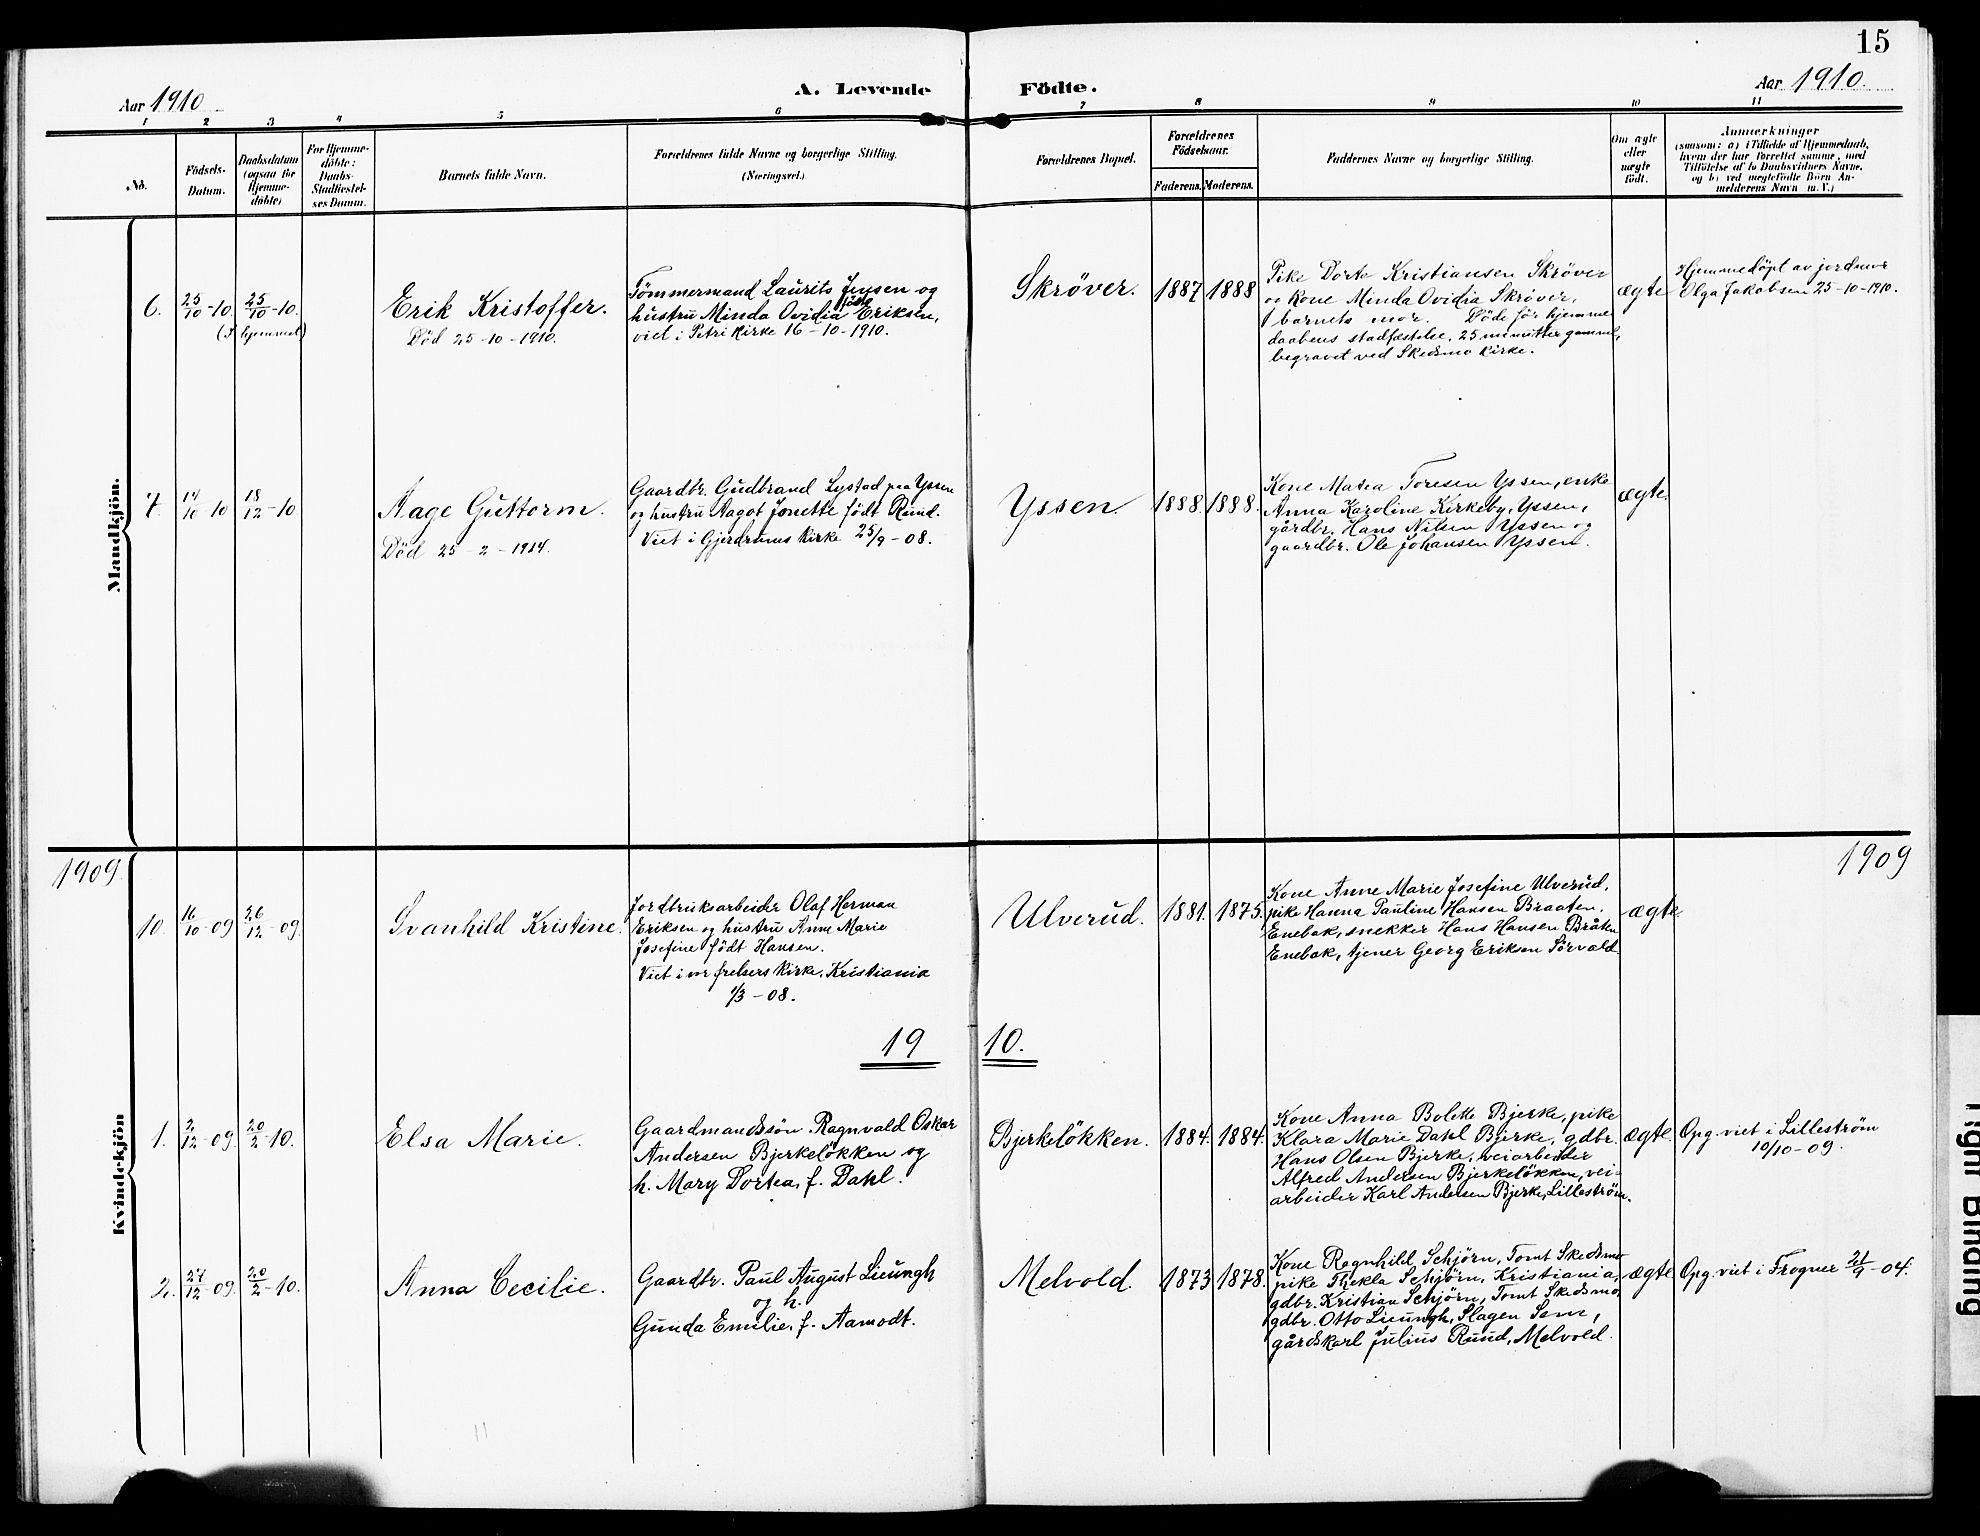 15
Aar 1910
A. Levende Födte.
Aar 1910.
1 2 3 4 5 6 7 8 9 10 11
No.
Födsels-
Datum.
Daabsdatum
(ogsaa for
Hjemme-
döbte)
For Hjemme-
döbte:
Daabs-
Stadfæstel-
ses Datum.
Barnets fulde Navn.
Forældrenes fulde Navne og borgerlige Stilling.
(Næringsvei.)
Forældrenes Bopæl.
Forældrenes
Födselsaar.
Faderens. Moderens.
Faddernes Navne og borgerlige Stilling.
Om ægte
eller
uægte
födt.
Anmærkninger
(saasom: a) i Tilfælde af Hjemmedaab,
hvem der har forrettet samme, med
Tilföielse af to Daabsvidners Navne,
og b) ved uægtefödte Börn An-
melderens Navn m. V.)
Mandkjön.
6. 25/10-10. 25/10-10.
(I hjemmet)
Erik Kristoffer.
Död 25-10-1910.
Tömmermand Laurits Jensen og
hustru Minda Ovidia född Eriksen,
viet i Petri kirke 16-10-1910.
Skröver.
1887 1888
Pike Dorte Kristiansen Skröver
og kone Minda Ovidia Skröver,
barnets mor. Döde för hjemme
daabens stadfæstelse, 25 minutter gammel,
begravet ved Skedsmo kirke.
ægte
Hjemmedöpt av jordmor
Olga Jakobsen 25-10-1910.
7. 14/10-10 18/12-10.
Aage Guttorm.
Död 25-2-1914.
Gaardbr. Gudbrand Lystad paa Yssen
og hustru Aagot Jonette född Rund.
Viet i Gjerdrums kirke 25/9-08.
Yssen.
1888. 1888.
Kone Matea Toresen Yssen, enke
Anna Karoline Kirkeby, Yssen,
gårdbr. Hans Nilsen Yssen og
gaardbr. Ole Johansen Yssen.
ægte.
1909. 1909
Kvindekjön
10. 16/10-09 26/12-09.
Svanhild Kristine.
Jordbruksarbeider Olaf Herman
Eriksen og hustru Anne Marie
Josefine född Hansen.
Viet i vor frelsers kirke, Kristiania
1/3-08.
Ulverud.
1881. 1875.
Kone Anne Marie Josefine Ulverud,
pike Hanna Pauline Hansen Braaten,
Enebak, snekker Hans Hansen Bråten
Enebak, tjener Georg Eriksen Sörvald
ægte.
19 10.
1. 2/12-09. 20/2-10.
Elsa Marie.
Gaardmandssön Ragnvald Oskar
Andersen Bjerkelökken og
h. Mary Dortea, f. Dahl.
Bjerkelökken.
1884. 1884.
Kone Anna Bolette Bjerke, pike
Klara Marie Dahl Bjerke, gdbr.
Hans Olsen Bjerke, veiarbeider
Alfred Andersen Bjerkelökken, vei-
arbeider Karl Andersen Bjerke, Lilleström.
ægte.
Opg. viet i Lilleström
10/10-09.
2. 27/12-09. 20/2-10.
Anna Cecilie.
Gaardbr. Paul August Lieungh
og h.
Gunda Emilie, f. Aamodt.
Melvold.
1873 1878.
Kone Ragnhild Schjörn, Tomt Skedsmo
pike Thekla Schjörn, Kristiania,
gdbr. Kristian Schjörn, Tomt Skedsmo,
gdbr. Otto Lieungh, Slagen Sem,
gårdskarl Julius Ruud, Melvold.
ægte.
Opg. viet i Frogner 21/9-04.
Tight Binding